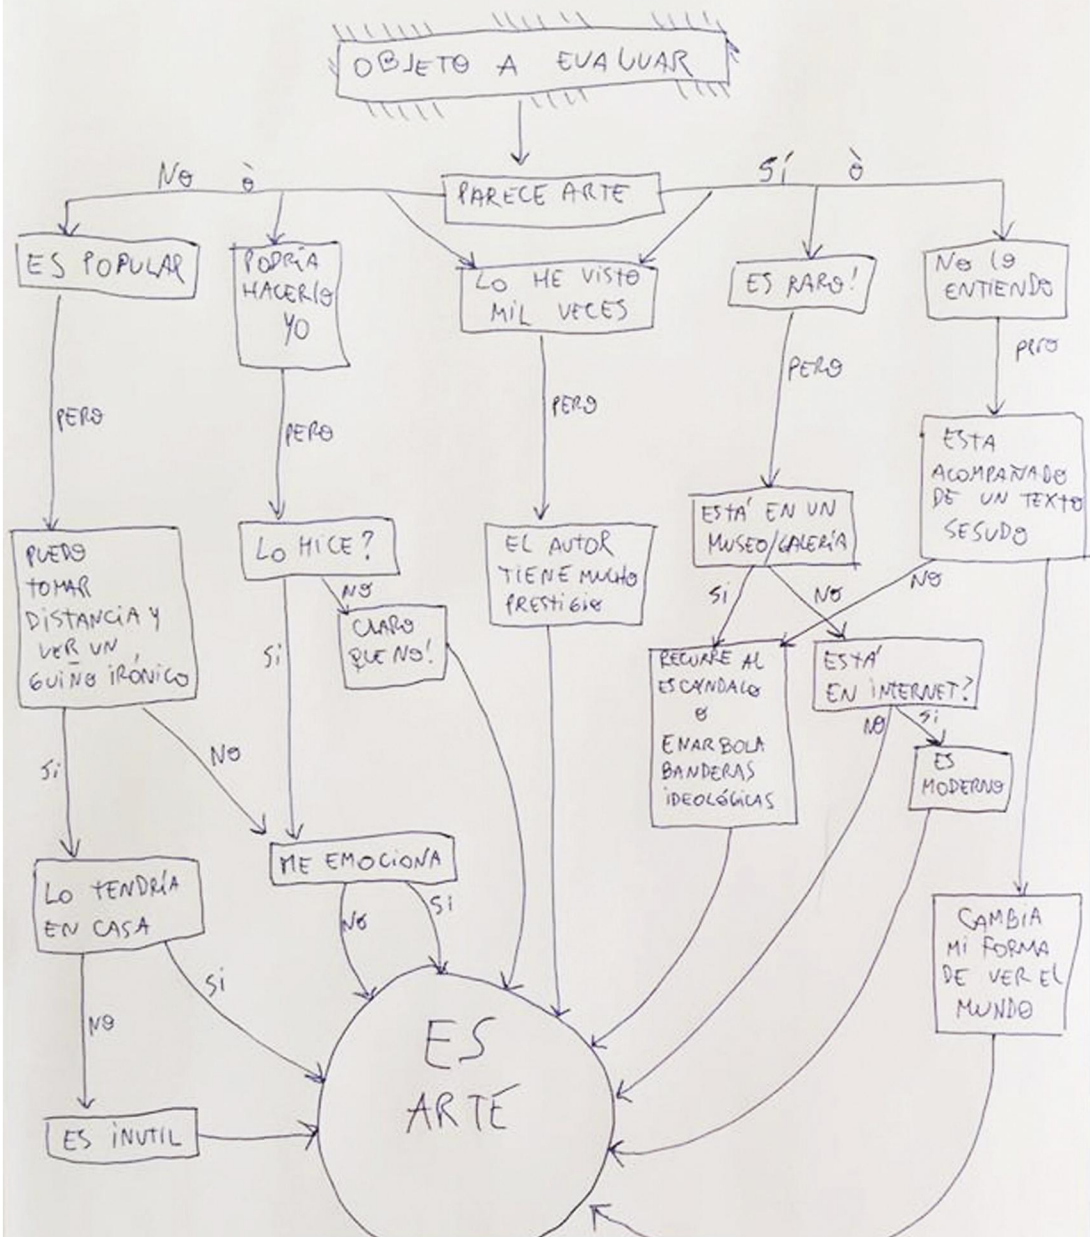 OBJETO A EVALUAR
NO ò
PARECE ARTE
SÍ ò
ES POPULAR
PODRÍA
HACERLO
YO
LO HE VISTO
MIL VECES
ES RARO!
NO LO
ENTIENDO
PERO
PERO
PERO
PERO
PERO
PUEDO
TOMAR
DISTANCIA Y
VER UN
GUIÑO IRÓNICO
LO HICE?
NO
CLARO
QUE NO!
SI
EL AUTOR
TIENE MUCHO
PRESTIGIO
ESTÁ EN UN
MUSEO/GALERÍA
SI
NO
ESTA
ACOMPAÑADO
DE UN TEXTO
SESUDO
NO
RECURRE AL
ESCÁNDALO
O
ENARBOLA
BANDERAS
IDEOLÓGICAS
ESTÁ
EN INTERNET?
NO
SI
ES
MODERNO
SI
NO
LO TENDRÍA
EN CASA
ME EMOCIONA
NO
SI
CAMBIA
MI FORMA
DE VER EL
MUNDO
NO
SI
ES INUTIL
ES
ARTE